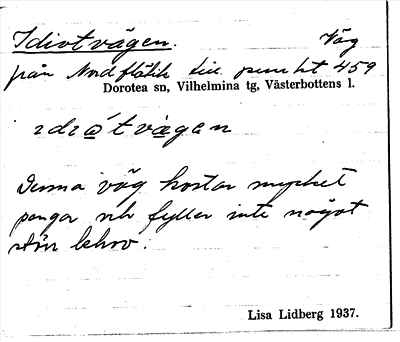 Idiotvägen. Väg
från Nordflätik till punkt 459
Dorotea sn, Vilhelmina tg, Västerbottens l.
ıdıǫ́tvägan
Denna väg kostar mycket
pengar och fyller inte något
större behov.
Lisa Lidberg 1937.